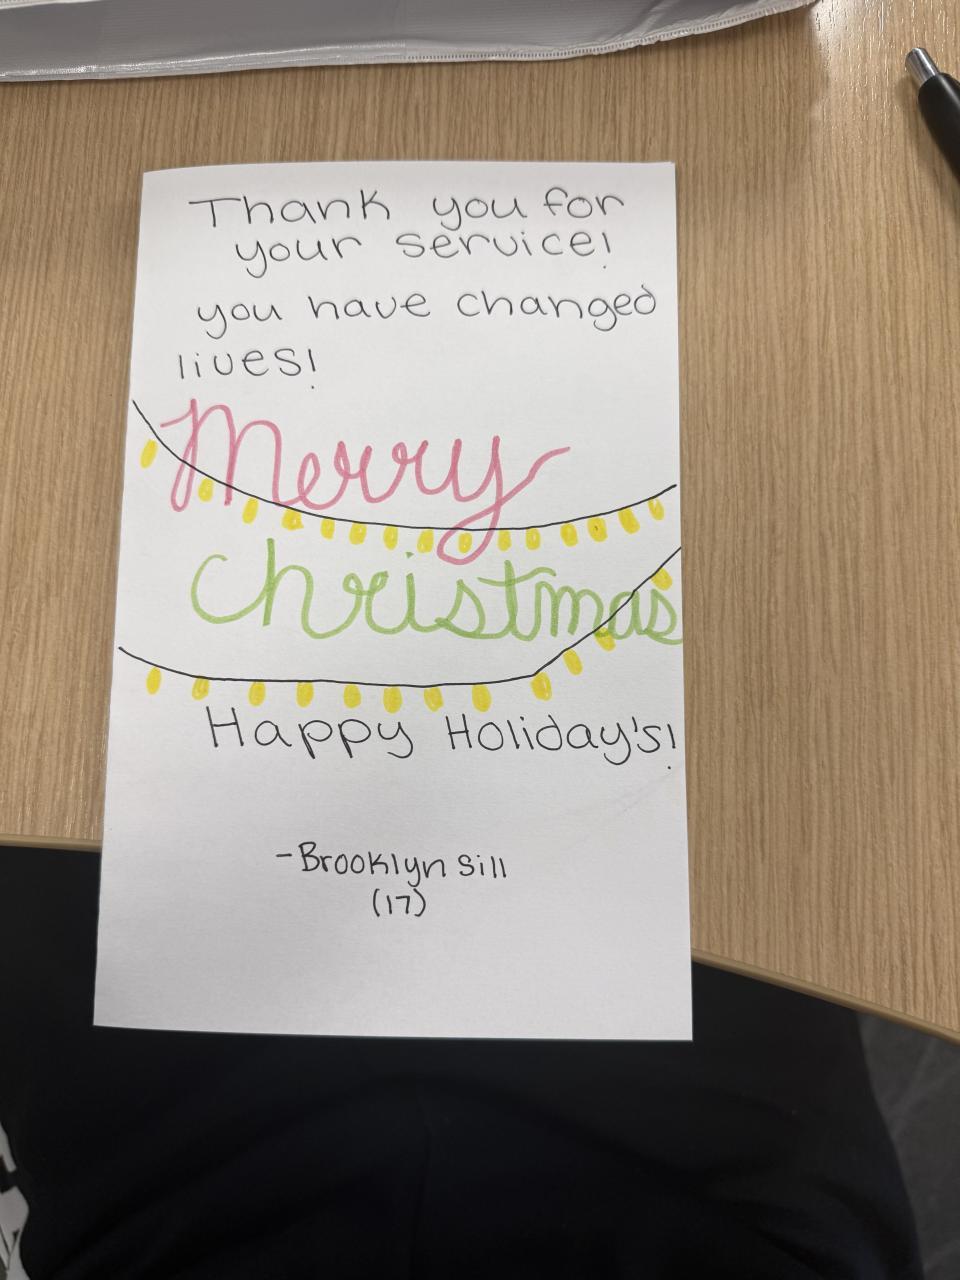 Thank you for
your service!
you have changed
lives!
Merry
Christmas
Happy Holiday's!
-Brooklyn Sill
(17)